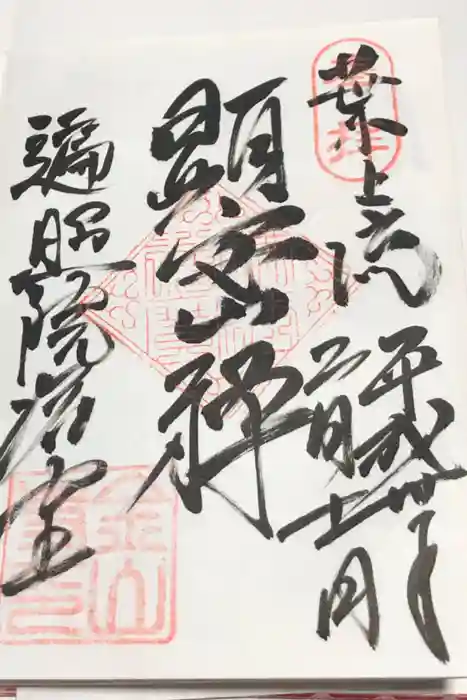 奉拝
葉上流
平成卅年
二月十一日
顕密禅
遍照院 室